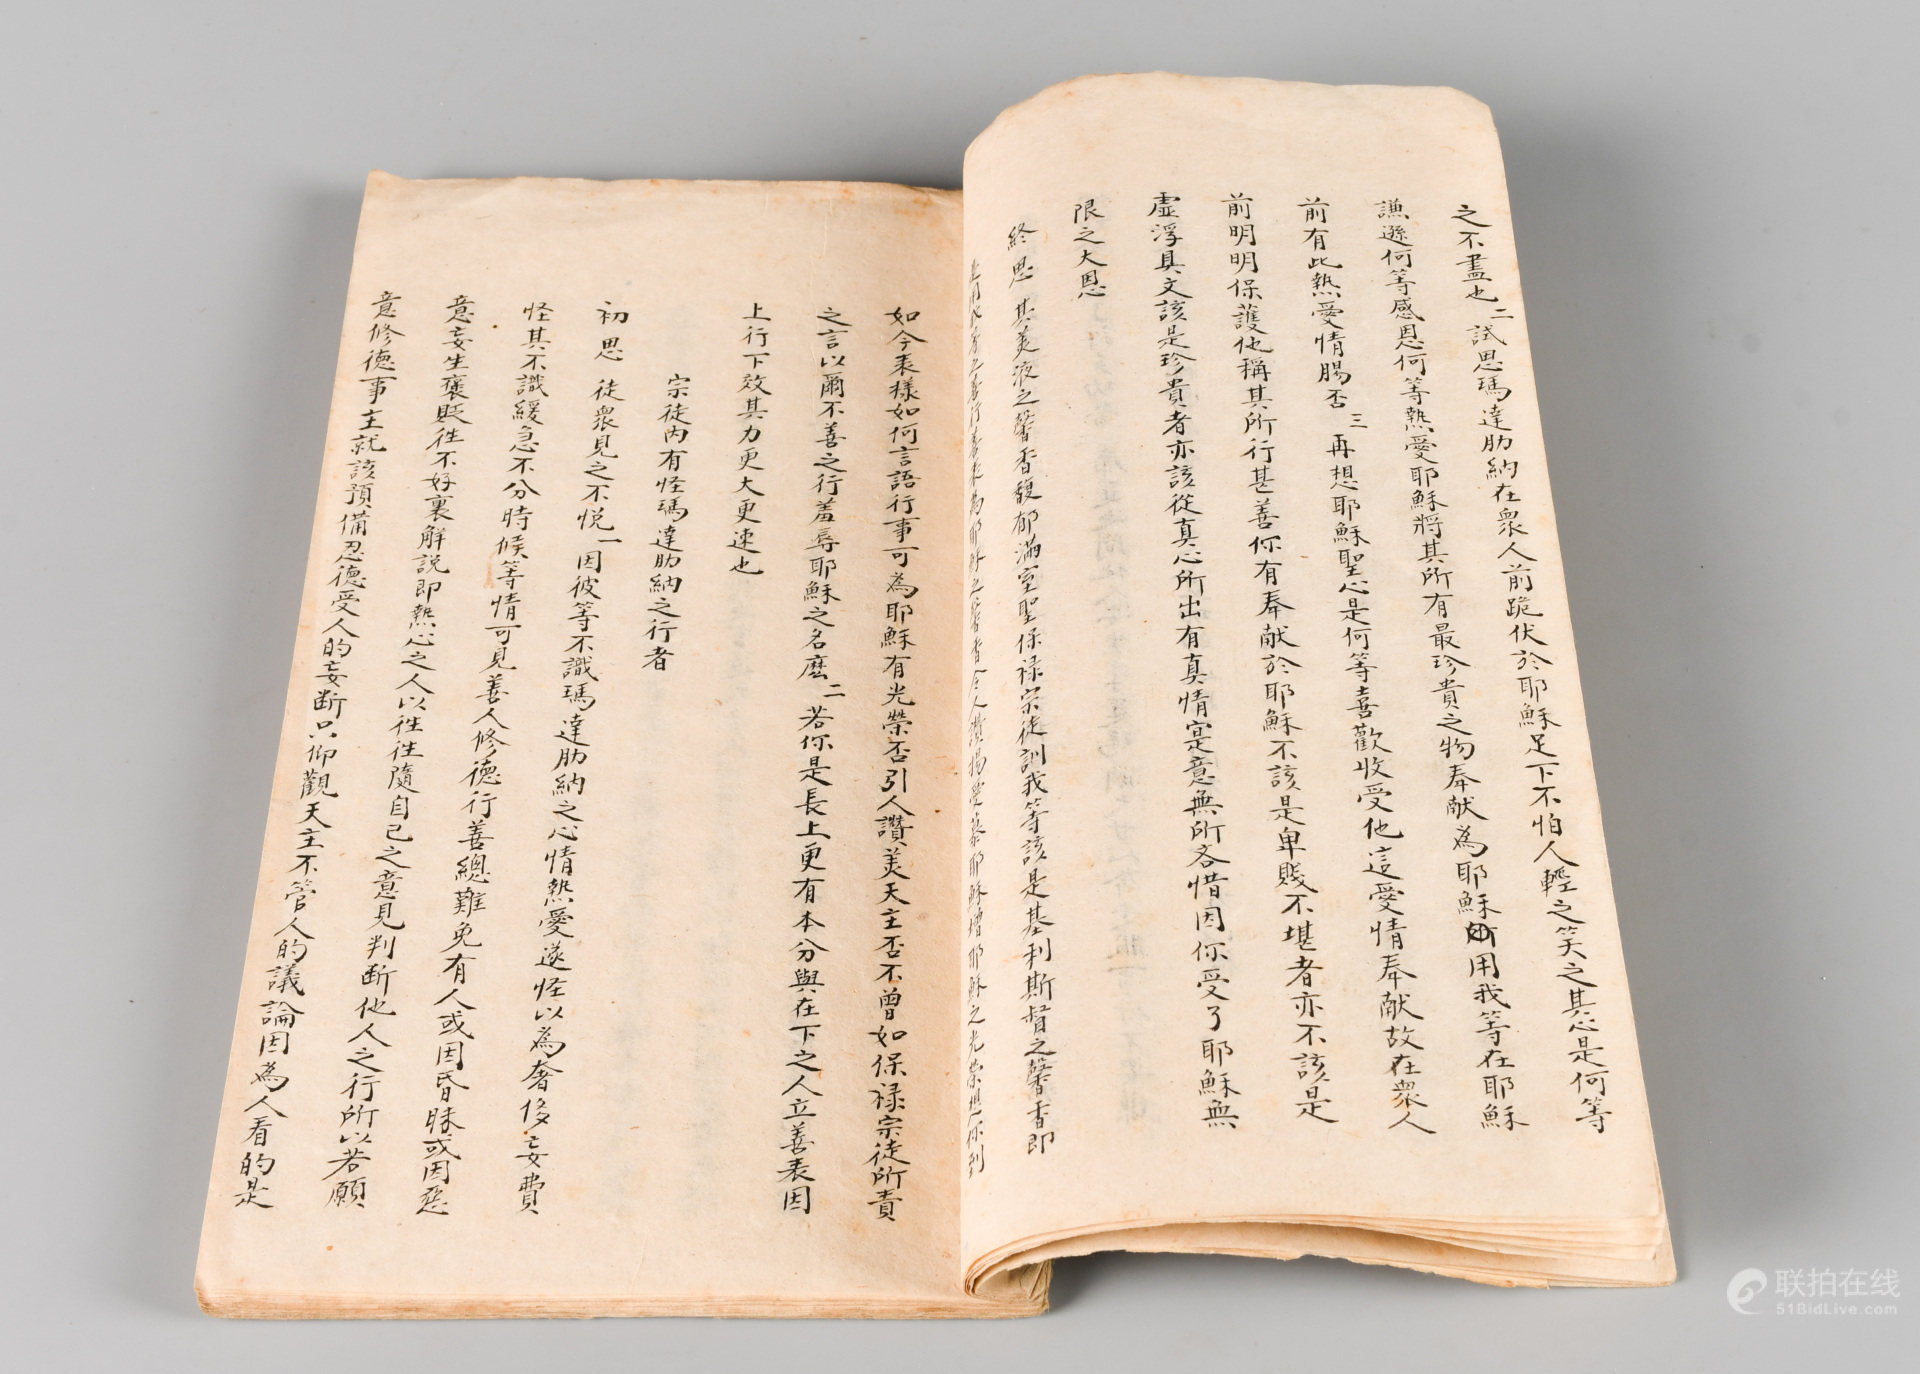 之不盡也 二 試思瑪達肋納在衆人前跪伏於耶穌足下不怕人輕之笑之其心是何等
謙遜何等感恩何等熱愛耶穌將其所有最珍貴之物奉献為耶穌所用我等在耶穌
前有此熱愛情腸否 三 再想耶穌聖心是何等喜歡收受他這愛情奉献故在衆人
前明明保護他稱其所行甚善你有奉献於耶穌不該是卑賤不堪者亦不該是
虛浮具文該是珍貴者亦該從真心所出有真情寔意無所吝惜因你受了耶穌無
限之大恩
終思 其美液之馨香馥郁滿室聖保禄宗徒訓我等該是基利斯督之馨香即
之善行善表為耶穌之馨香令人讚揚愛慕耶穌增耶穌之光榮想你到
如今表樣如何言語行事可為耶穌有光榮否引人讚美天主否不曾如保禄宗徒所責
之言以爾不善之行羞辱耶穌之名麽 二 若你是長上更有本分與在下之人立善表因
上行下效其力更大更速也
宗徒内有怪瑪達肋納之行者
初思 徒衆見之不悦 一 因彼等不識瑪達肋納之心情熱愛遂怪以為奢侈妄費
怪其不識緩急不分時候等情可見善人修德行善總難免有人或因昏昧或因惡
意妄生褒貶往不好裏解説即熱心之人以徃徃隨自己之意見判断他人之行所以若願
意修德事主就該預備忍德受人的妄斷只仰觀天主不管人的議論因為人看的是
联拍在线
51BidLive.com